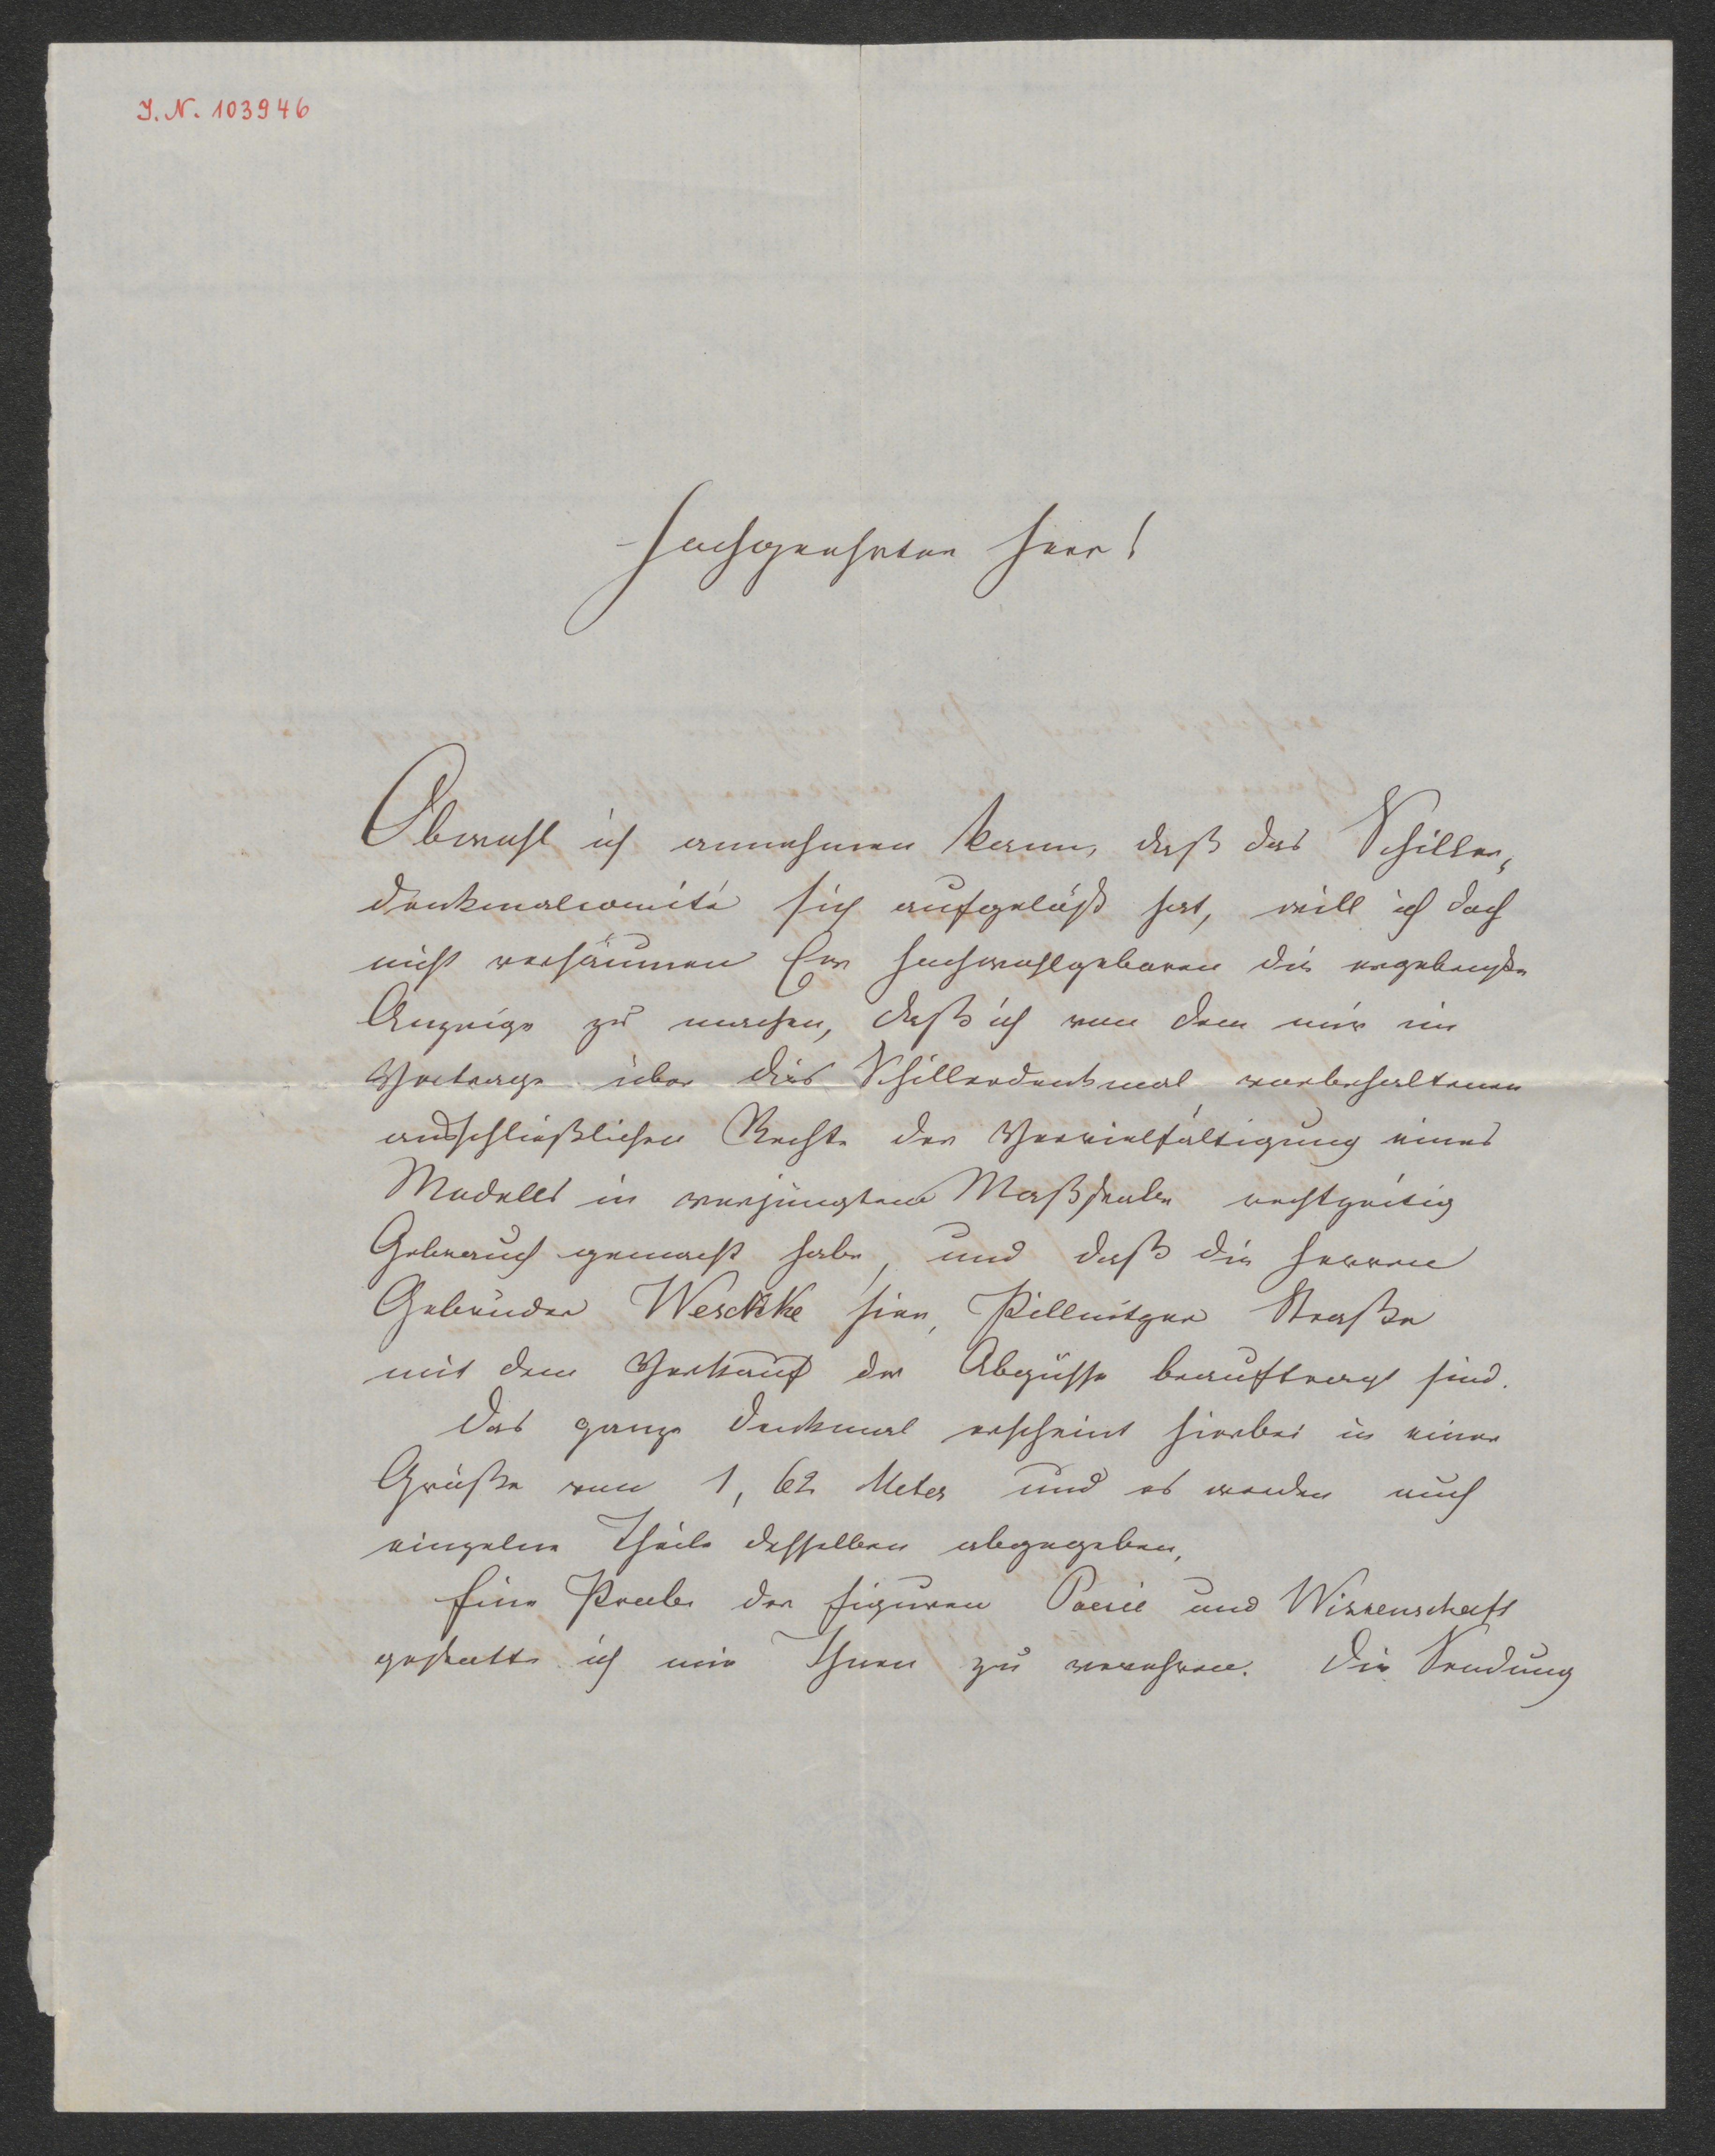 J. N. 103946
Hochgeehrter Herr!
Obwohl ich annehmen kann, daß das Schiller-
denkmalcomité sich aufgelöst hat, will ich doch
nicht versäumen Ew Hochwohlgeboren die ergebenste
Anzeige zu machen, daß ich von dem mir im
Vertrage über das Schillerdenkmal vorbehaltenen
ausschließlichen Rechte der Vervielfältigung eines
Modells in verjüngtem Maßstabe rechtzeitig
Gebrauch gemacht habe, und daß die Herren
Gebrüder Weschke hier, Pillnitzer Straße
mit dem Verkauf der Abgüsse beauftragt sind.
Das ganze Denkmal erscheint hierbei in einer
Größe von 1,62 Meter und es werden auch
einzelne Theile desselben abgegeben,
Eine Probe der Figuren Poesie und Wissenschaft
gestatte ich mir Ihnen zu verehren. Die Sendung